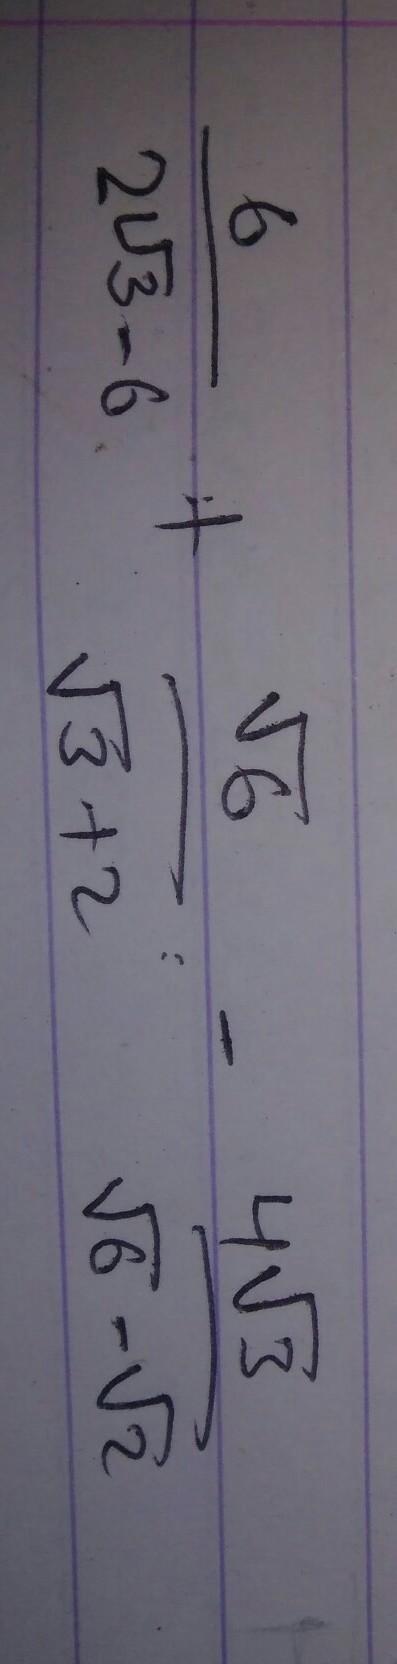 6/(2√3-6) + √6/(√3+2) - 4√3/(√6-√2)